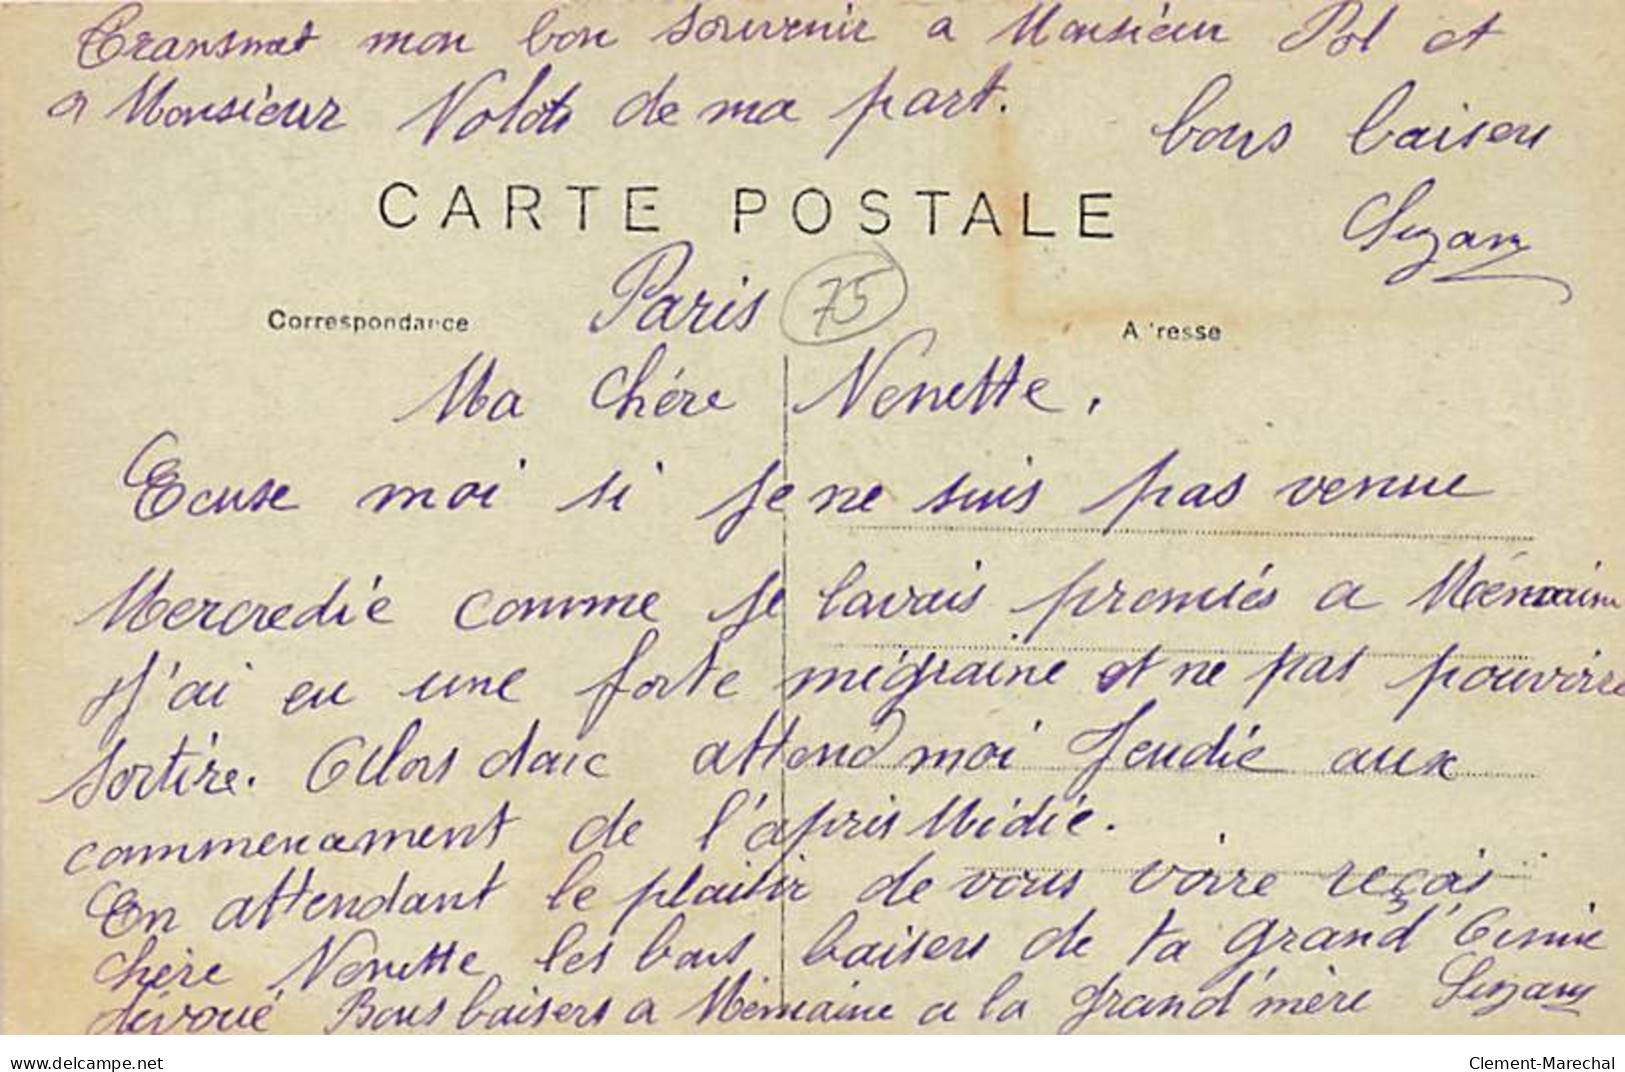 Transmet mon bon souvenir a Monsieur Pol et
a Monsieur Volots de ma part.
bons baisers
Suzan
CARTE POSTALE
Paris
75
Correspondance
A resse
Ma Chére Nenette,
Ecuse moi si je ne suis pas venue
Mercredie comme je lavais promiés a Mémaine
J'ai eu une forte migraine et ne pas pouvirre
sortire. Allors daic attend moi Jeudie aux
commencament de l'apris Midie.
En attendant le plaisir de vous voire reçois
chère Nenette les bons baisers de ta grand'
dévoué Bons baisers a Mémaine a la grand'mère Suzan
www.delcampe.net
Clement-Marechal